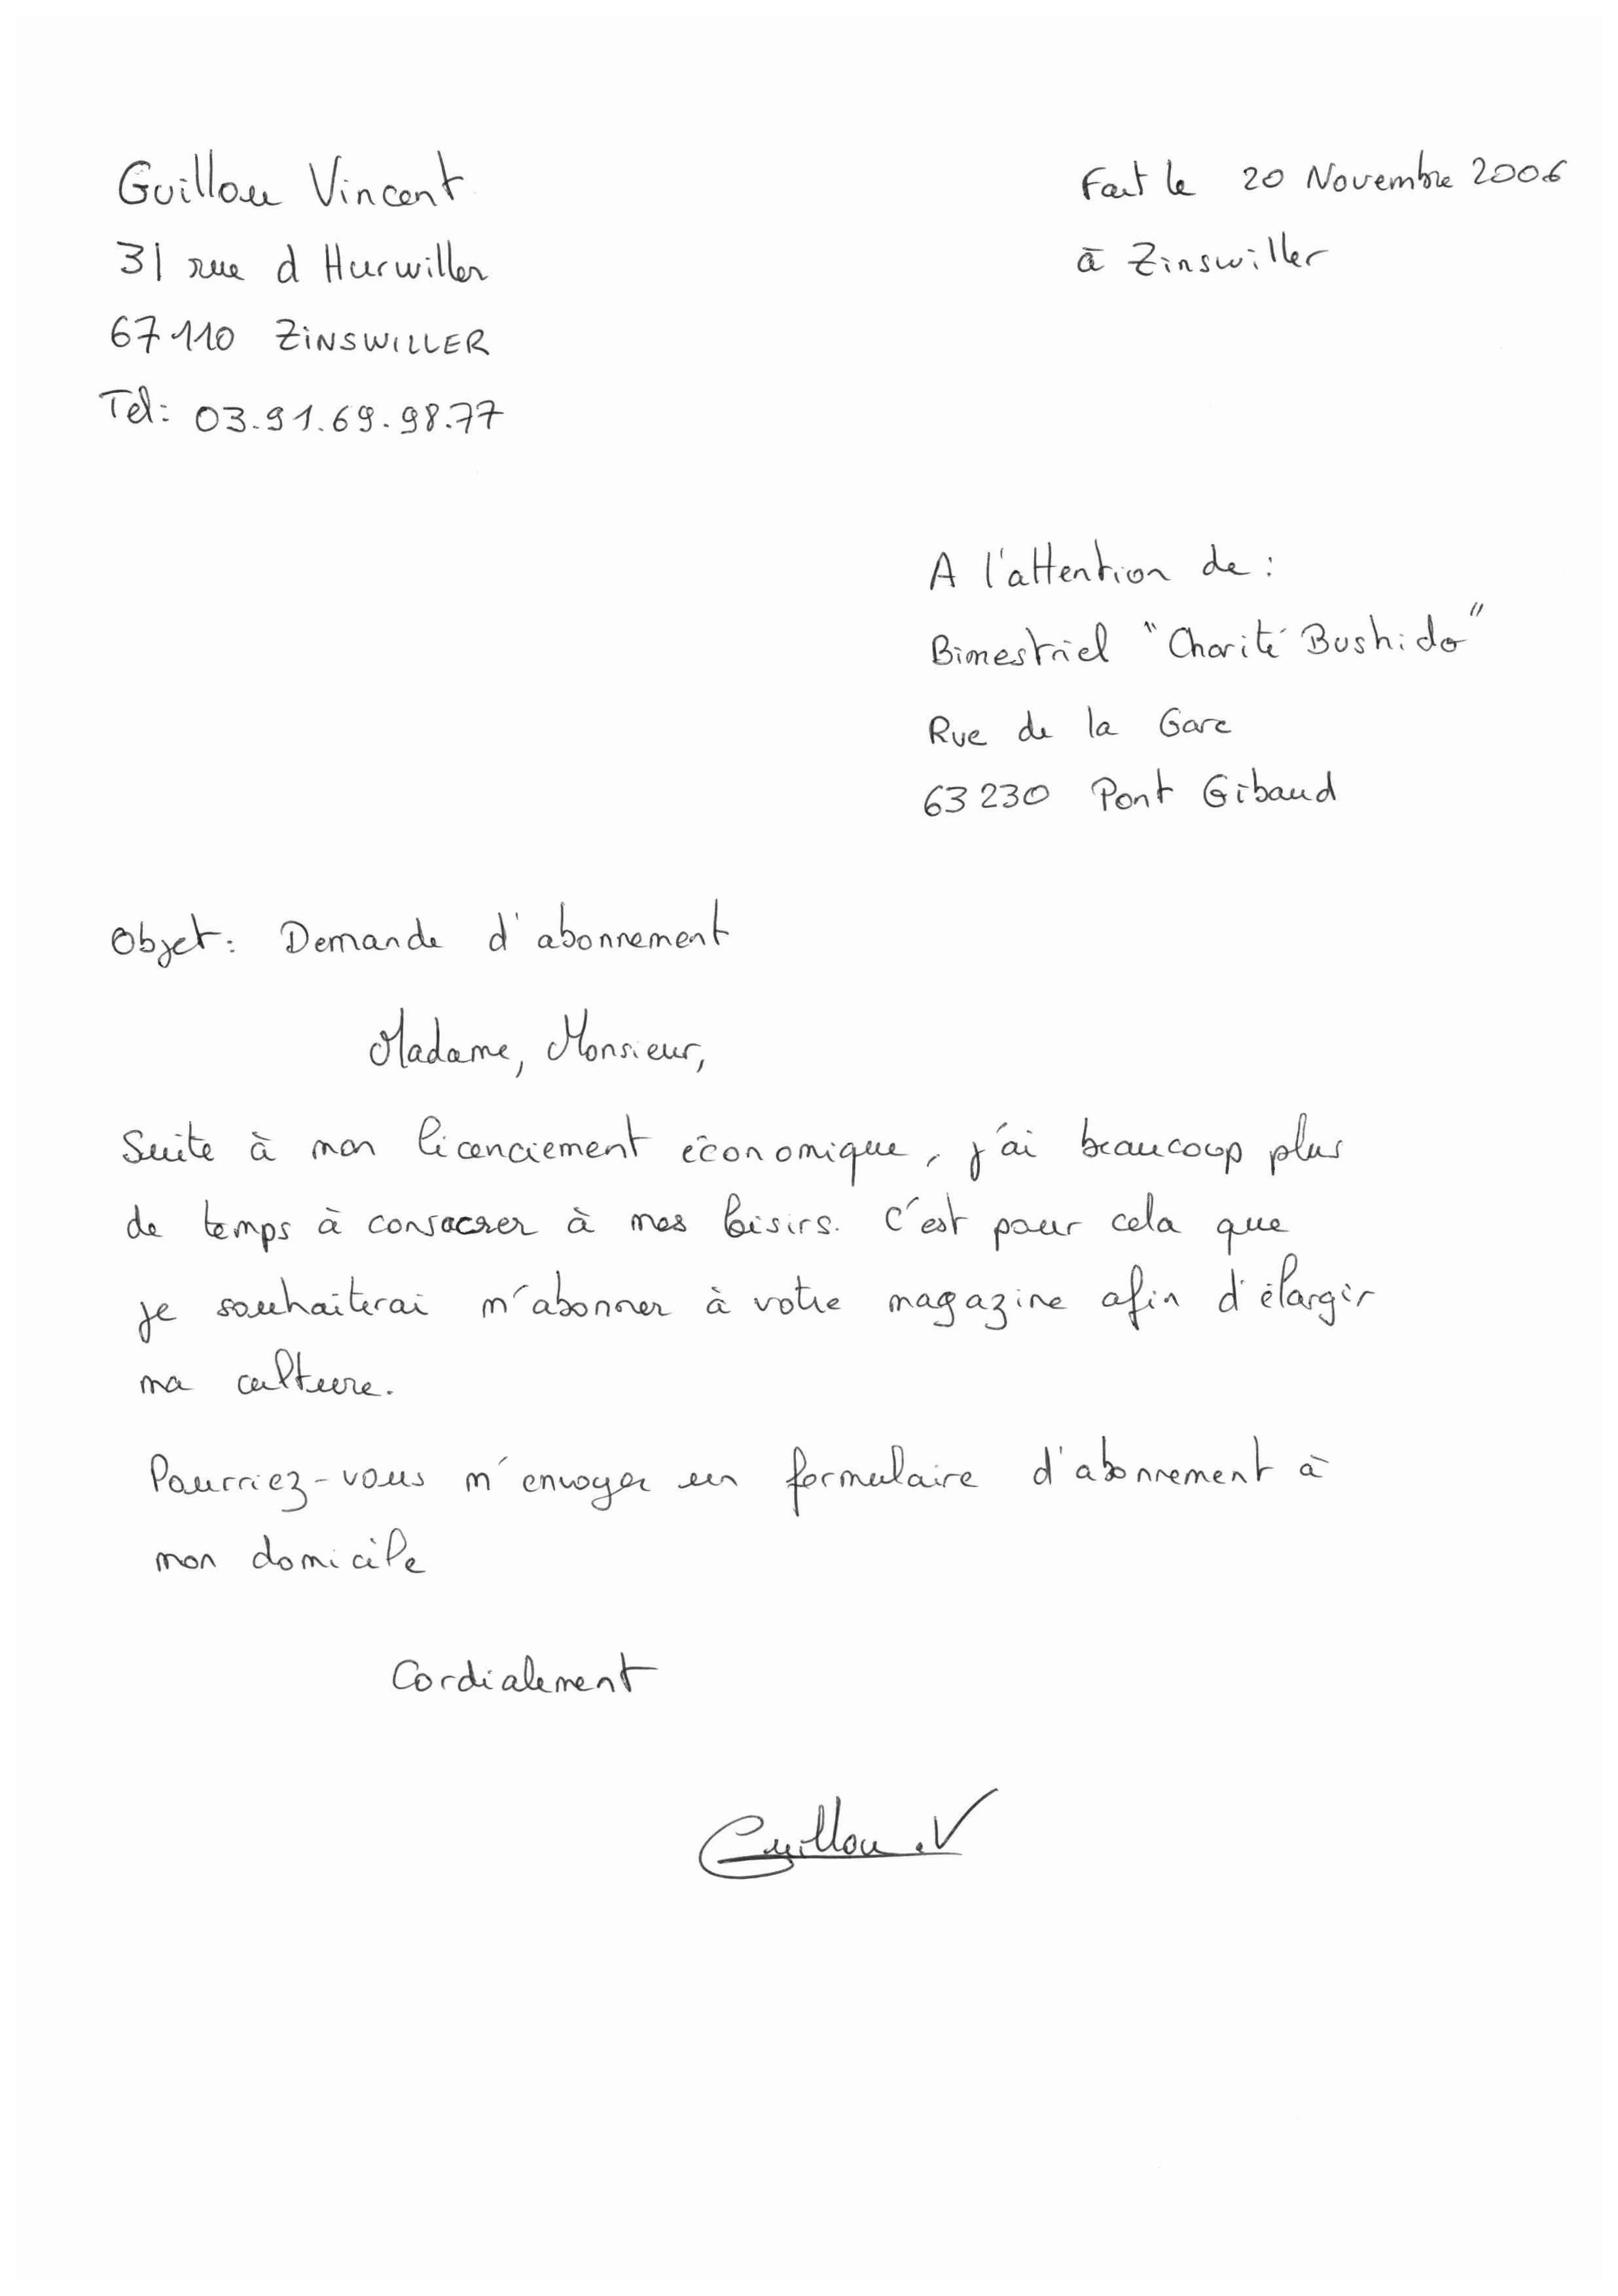 Guillou Vincent
31 rue d Hurwiller
67110 ZINSWILLER
Tel: 03.91.69.98.77
Fait le 20 Novembre 2006
à Zinswiller
A l'attention de :
Bimestriel "Charité Bushido"
Rue de la Gare
63230 Pont Gibaud
Objet: Demande d'abonnement
Madame, Monsieur,
Suite à mon licenciement économique, j'ai beaucoup plus
de temps à consacrer à mes loisirs. C'est pour cela que
je souhaiterai m'abonner à votre magazine afin d'élargir
ma culture.
Pourriez-vous m'envoyer un formulaire d'abonnement à
mon domicile
Cordialement
Guillou.V